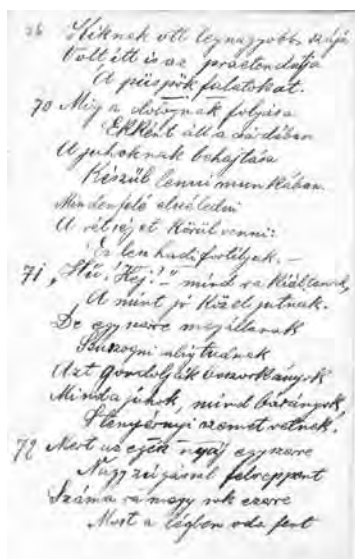 Kiknek ott legnagyobb szája
Volt itt is az
A püspök falatokat.
70 Míg a dolognak folyása
Ekként áll a
A juhoknak behajtása
Készül lenni munkában
Mindenfelé
A rétséget körül venni:
Ez len hadi fortélyuk. —
71 „Hü! Hej!" mind rá kiáltanak,
A mint jó közel jutnak.
De egyszerre megállanak
Szuszogni alig tudnak
Azt gondolják boszorkányok
Mind a juhok, mind bárányok,
Tenyérnyi szemet vetnek.
72 Mert az egész nyáj egyszerre
Nagy zúgással felreppent
Száma rá megy sok ezerre
Most a légben oda fent